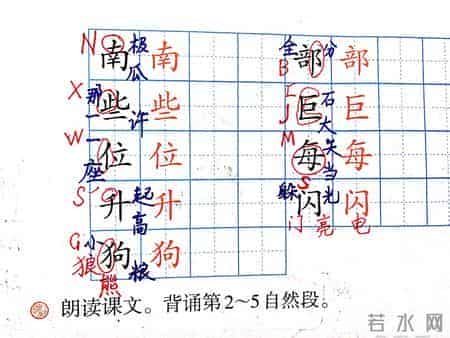 N 南 极 瓜 南 全 部 份 B 部
X 那 一 些 许 些 J 巨 石 大 巨
W 一 座 位 位 M 每 天 当 每
S 升 起 高 升 躲 闪 S 光 闪
G 小 狼 狗 熊 粮 狗 门 亮 电
朗读课文。背诵第2~5自然段。
若水网